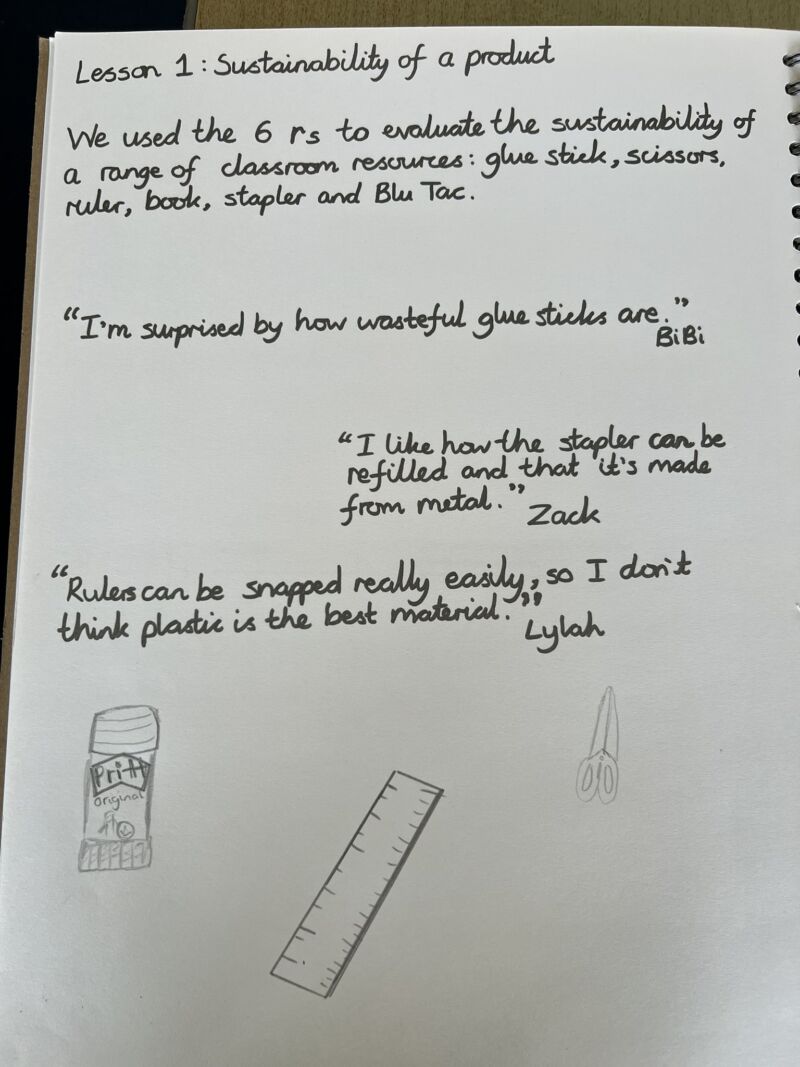 Lesson 1: Sustainability of a product
We used the 6 rs to evaluate the sustainability of
a range of classroom resources: glue stick, scissors,
ruler, book, stapler and Blu Tac.
"I'm surprised by how wasteful glue sticks are."
BiBi
"I like how the stapler can be
refilled and that it's made
from metal."
Zack
"Rulers can be snapped really easily, so I don't
think plastic is the best material."
Lylah
Pritt
original